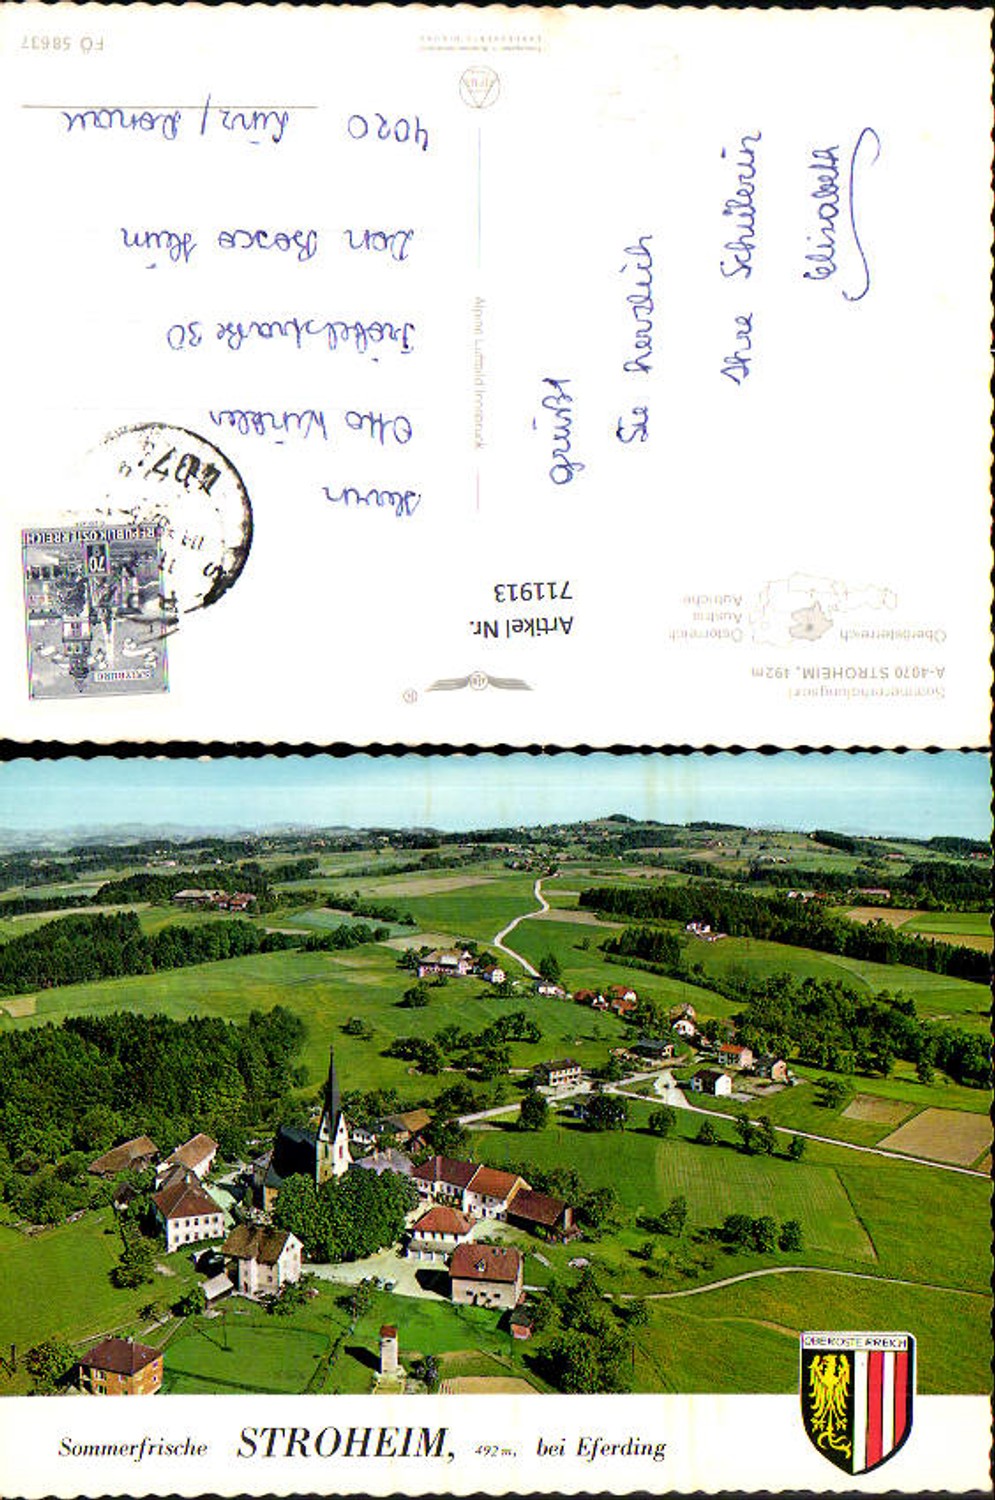 Sommererholungsort
A-4070 STROHEIM, 492m
Oberösterreich
Österreich
Austria
Autriche
Artikel Nr.
711913
grüßt
Sie herzlich
Ihre Schülerin
Elisabeth
Alpine Luftbild Innsbruck
REPUBLIK ÖSTERREICH
70
SALZBURG
407
Herrn
Otto Winkler
Fröbelstraße 30
Don Bosco Heim
4020 Linz / Donau
FÖ 58637
OBERÖSTERREICH
Sommerfrische STROHEIM, 492 m, bei Eferding